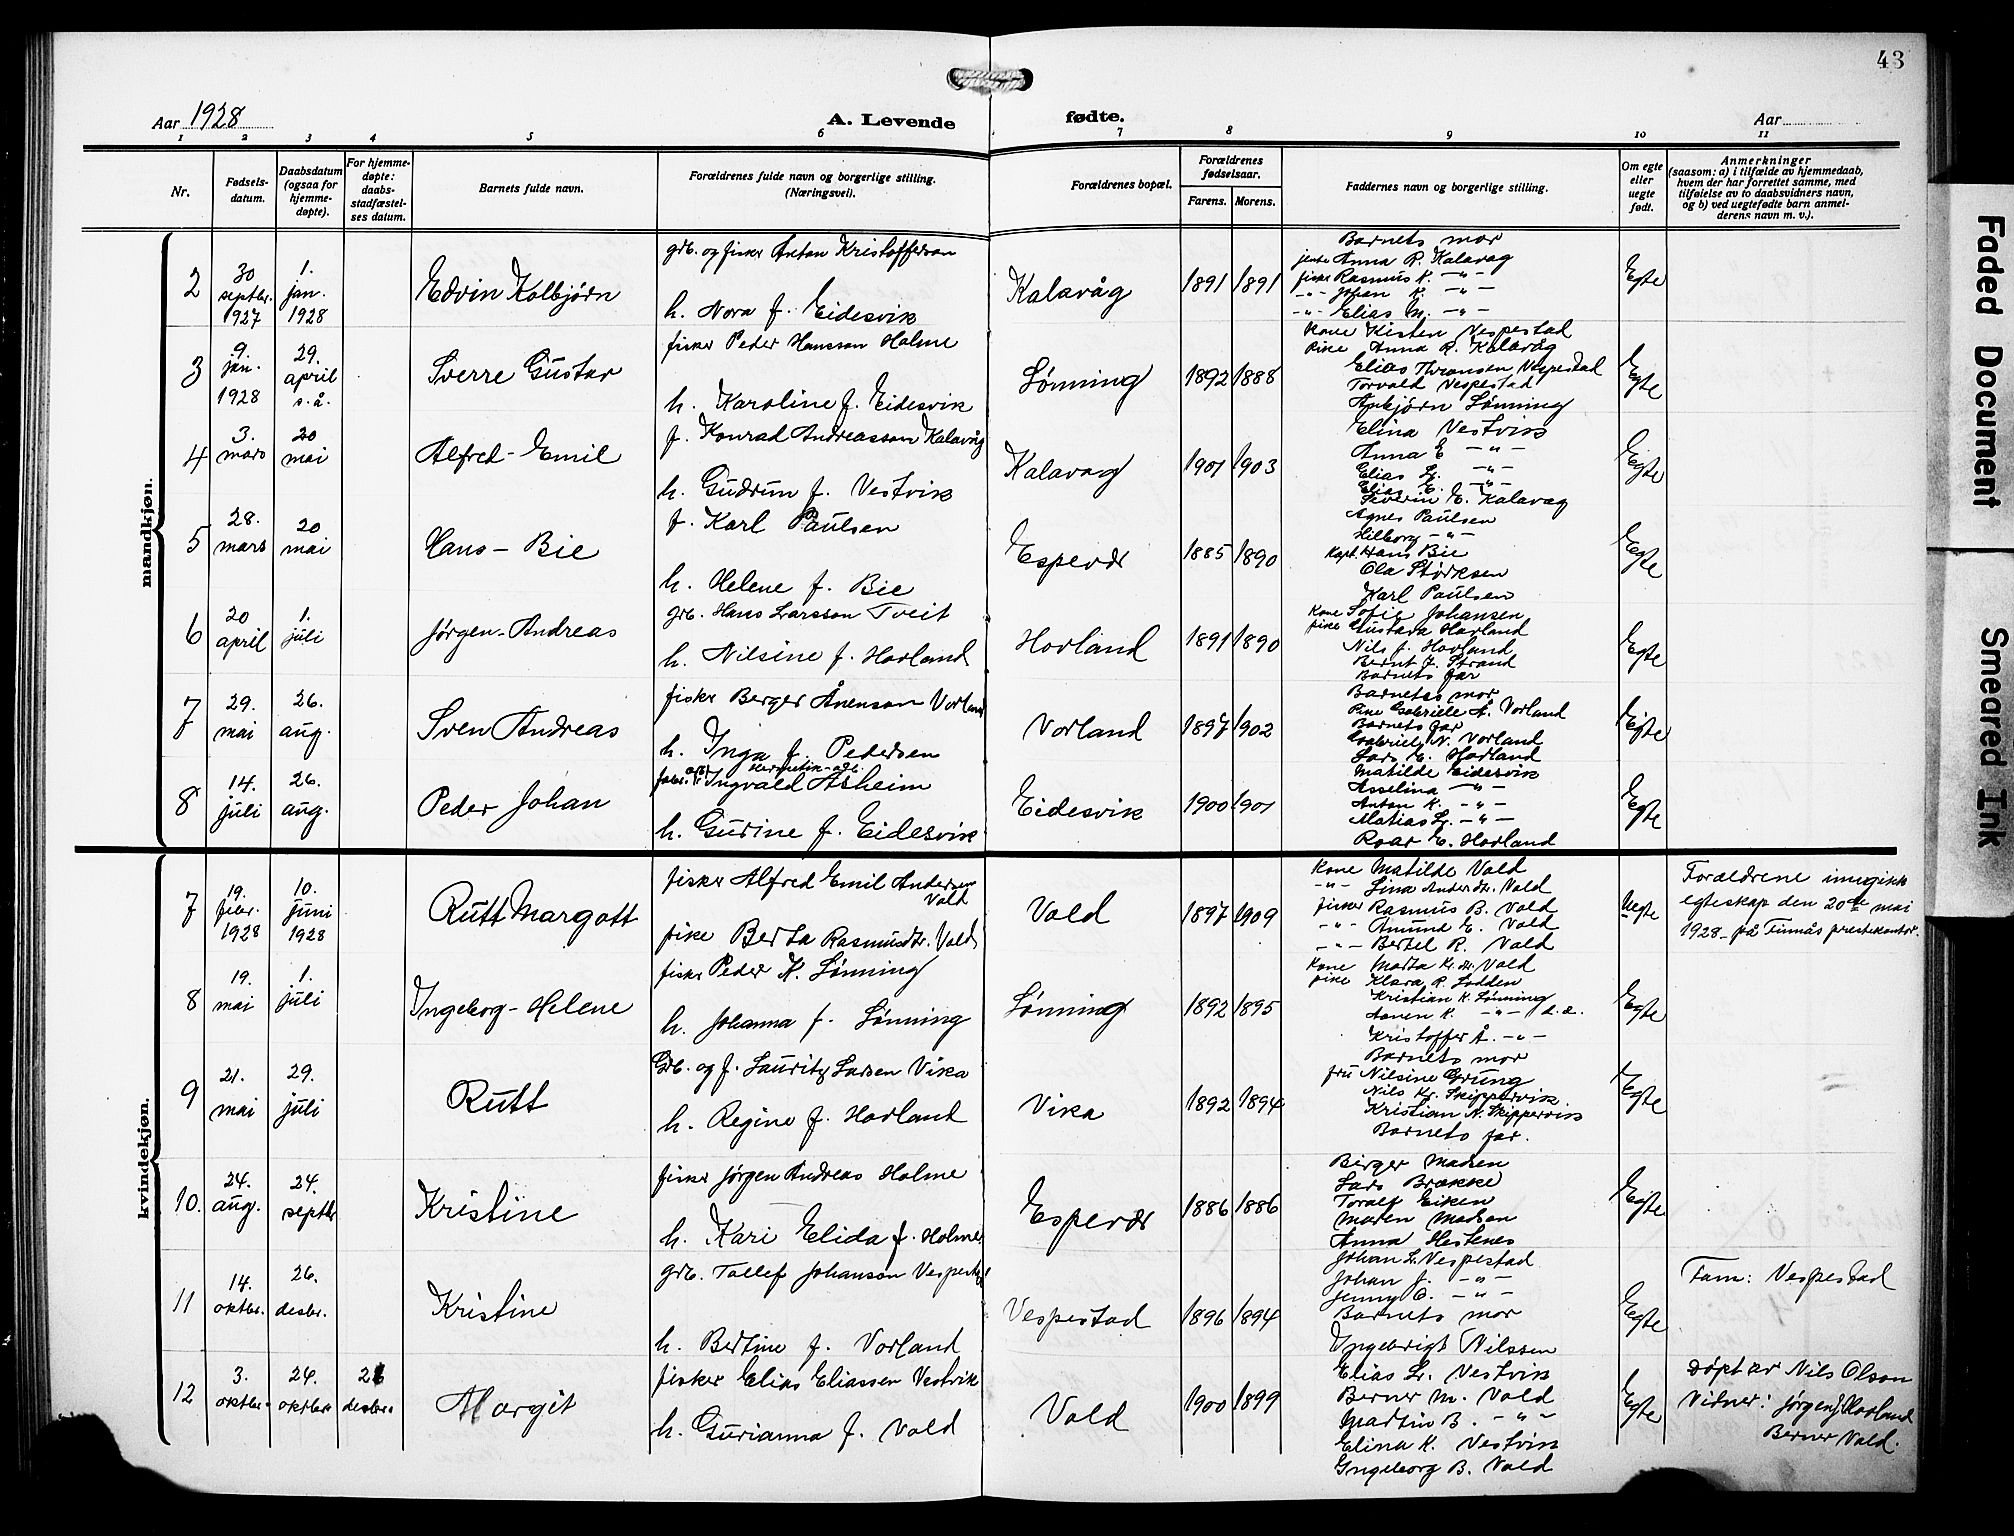 43
Aar 1928
A. Levende fødte.
Aar
1 2 3 4 5 6 7 8 9 10 11
Nr.
Fødsels-
datum.
Daabsdatum
(ogsaa for
hjemme-
døpte).
For hjemme-
døpte:
daabs-
stadfæstel-
ses datum.
Barnets fulde navn.
Forældrenes fulde navn og borgerlige stilling.
(Næringsvei).
Forældrenes bopæl.
Forældrenes
fødselsaar.
Farens. Morens.
Faddernes navn og borgerlige stilling.
Om egte
eller
uegte
født.
Anmerkninger
(saasom: a) i tilfælde av hjemmedaab,
hvem der har forrettet samme, med
tilføielse av to daabsvidners navn,
og b) ved uegtefødte barn anmel-
derens navn m. v.).
mandkjøn.
2
30
septbr.
1927
1.
jan.
1928
Edvin Kolbjørn
grb. og fisker Anton Kristofferson
h. Nora f. Eidesvik
Kalavåg
1891 1891
Barnets mor
jente Anna R. Kalavag
fisker Rasmus K. -"-
-"- Johan K. -"-
-"- Elias M. -"-
Egte
3
9.
jan.
1928
29.
april
s. å.
Sverre Gustav
fisker Peder Hansson Holme
h. Karoline f. Eidesvik
Lønning
1892 1888
Kone Kisten Vespestad
Pike Anna R. Kalavåg
Elias Thronsen Vespestad
Torvald Vespestad
Asbjørn Lønning
Egte
4
3.
mars
20
mai
Alfred-Emil
f. Konrad Andreasson Kalavåg
h. Gudrun f. Vestvik
Kalavag
1901 1903
Elina Vestvik
Anna E -"-
Elias L. -"-
Elias E. -"-
Severin E. Kalavag
Egte
5
28.
mars
20
mai
Hans-Bie
f. Karl Paulsen
h. Helene f. Bie
Espevær
1885 1890
Agnes Paulsen
Hilborg -"-
Kapt. Hans Bie
Ola Størksen
Karl Paulsen
Egte
6
20
april
1.
juli
Jørgen-Andreas
grb. Hans Larsson Tveit
h. Nilsine f. Hovland
Hovland
1891 1890
Kone Sofie Johansen
pike Gustava Hovland
Nils J. Hovland
Bernt J. Strand
Barnets far
Egte
7
29.
mai
26.
aug.
Sven Andreas
fisker Berger Ånenson Vorland
h. Inga f. Pedersen
Vorland
1897 1902
Barnets mor
Pike Gabriele Å. Vorland
Barnets far
Gabriel N. Vorland
Lars E. Hovland
Egte
8
14.
juli
26.
aug.
Peder Johan
Ingvald Åsheim
h. Gurine f. Eidesvik
Eidesvik
1900 1901
Matilde Eidesvik
Asselina -"-
Anton K. -"-
Matias L. -"-
Roar E. Hovland
Egte
kvindekjøn.
7
19.
febr.
1928
10.
juni
1928
Rutt Margott
fisker Alfred Emil Andersen
Vold
pike Berta Rasmusdtr. Vold
Vold
1897 1909
Kone Matilde Vold
-"- Lina Andersdtr. Vold
fisker Rasmus B. Vold
-"- Amund E. Vold
-"- Bertel R. Vold
Uegte
Forældrene inngikk
egteskap den 20de mai
1928 - på Finnås prestekontor.
8
19.
mai
1.
juli
Ingeborg-Helene
fisker Peder K. Lønning
h. Johanna f. Lønning
Lønning
1892 1895
Kone Marta Kr.dtr. Vold
pike Klara R. Lodden
Kristian K. Lønning
Aanen K. -"- d. e.
Kristoffer Å. -"-
Egte
9
21.
mai
29.
juli
Rutt
Grb. og f. Lauritz Larsen Vika
h. Regine f. Hovland
Vika
1892 1894
Barnets mor
fru Nilsine Grung
Nils Kr. Skippervik.
Kristian N. Skippervik
Barnets far.
Egte
10.
24.
aug.
24.
septbr
Kristine
fisker Jørgen Andreas Holme
h. Kari Elida f. Holme
Espevær
1886 1886
Birger Madsen
Lars Brække
Toralf Eiken
Maren Madsen
Anna Hestenes
Egte
11
14.
oktbr.
26.
desbr.
Kristine
grb. Tollef Johanson Vespestad
h. Bertine f. Vorland
Vespestad
1896 1894
Johan L. Vespestad
Johan J. -"-
Jenny O. -"-
Barnets mor
Ingebrigt Nilssen
Egte
Fam: Vespestad
12
3.
oktbr.
24.
oktbr.
26
desbr.
Margit
fisker Elias Eliassen Vestvik
h. Gurianna f. Vold
Vold
1900 1899
Elias L. Vestvik
Berner M. Vold
Martin B. -"-
Elina K. Vestvik
Ingeborg B. Vold
Egte
Døpt av Nils Olson
Vitner: Jørgen J. Hovland
Berner Vold.
Faded Document
Smeared Ink